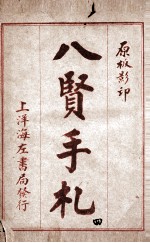 原板影印
八賢手札
四
上洋海左書局發行